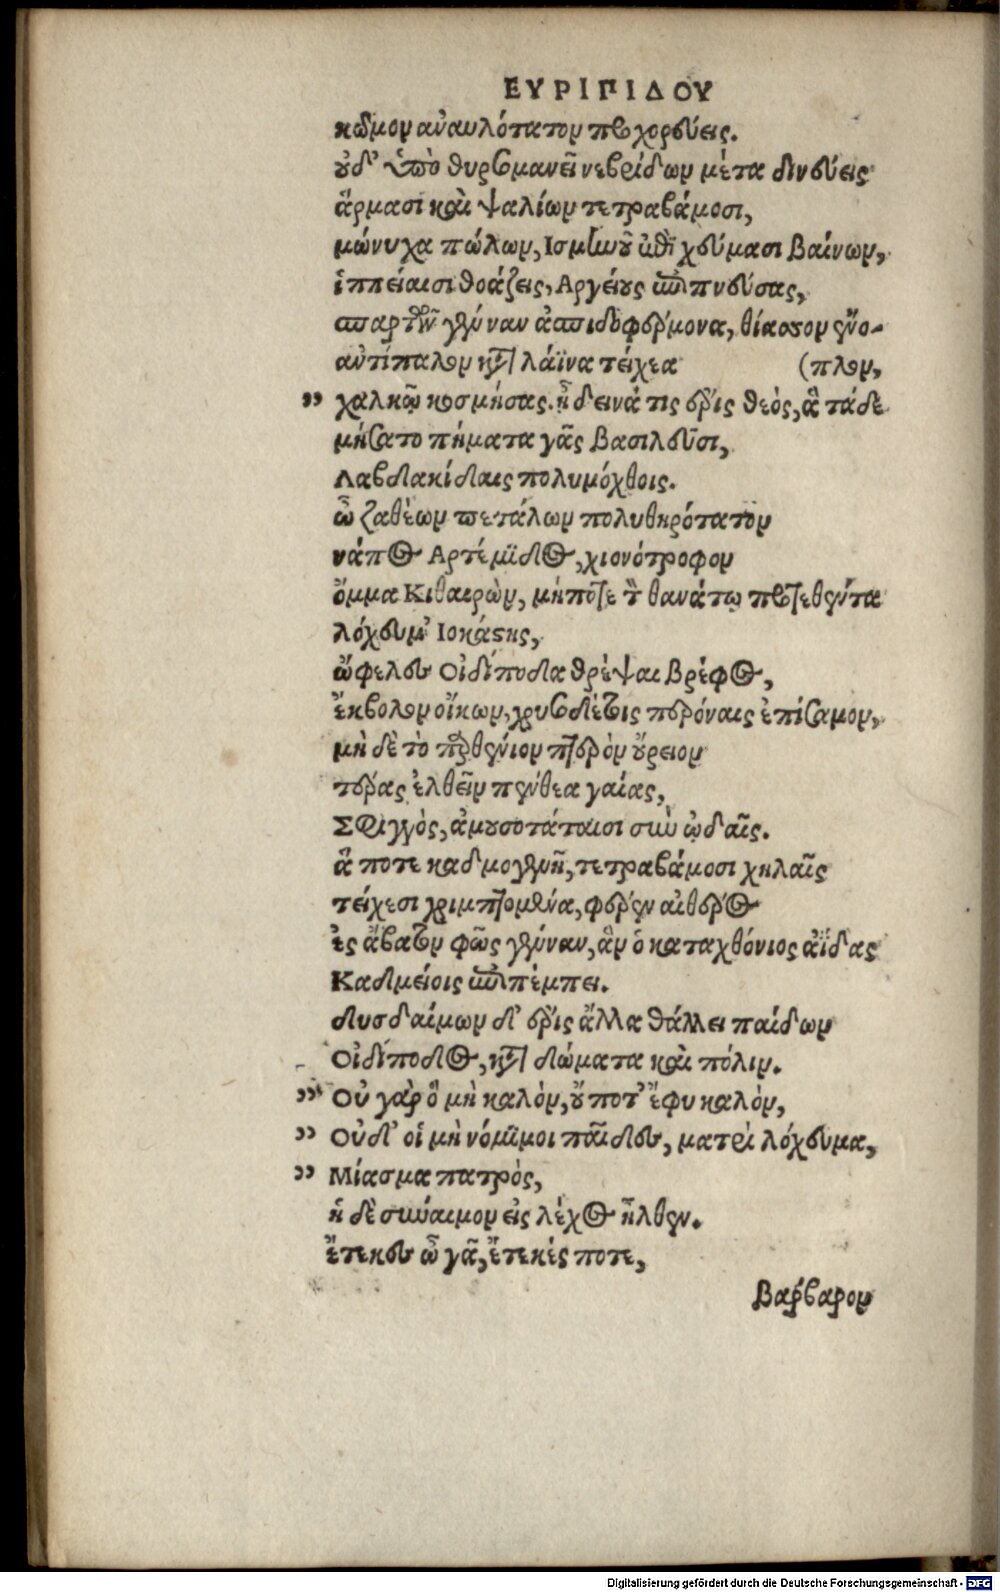 ΕΥΡΙΠΙΔΟΥ
κῶμον ἀναυλότατον προχορεύεις.
οὐδ' ὑπὸ θυρσομανεῖ νεβρίδων μέτα δινεύεις
ἅρμασι καὶ ψαλίων τετραβάμοσι,
μώνυχα πώλων, Ισμηνοῦ ἐπὶ χεύμασι βαίνων,
ἱππείαισι θοάζεις, Αργείους ἐπιπνεύσας,
σπαρτῶν γένναν ἀσπιδοφέρμονα, θίασον ἔνο-
ἀντίπαλον κατὰ λάϊνα τείχεα (πλον,
" χαλκῷ κοσμήσας. ἦ δεινά τις ἔρις θεὸς, ἃ τάδε
μήσατο πήματα γᾶς βασιλεῦσι,
Λαβδακίδαις πολυμόχθοις.
ὦ ζαθέων πετάλων πολυθηρότατον
νάπος Αρτέμιδος, χιονότροφον
ὄμμα Κιθαιρὼν, μήποτε τὸν θανάτῳ προτεθέντα
λόχευμ' Ιοκάστης,
ὤφελες Οἰδίποδα θρέψαι βρέφος,
ἔκβολον οἴκων, χρυσοδέτοις περόναις ἐπίσαμον,
μὴ δὲ τὸ παρθένιον πτερὸν οὔρειον
τέρας ἐλθεῖν πένθεα γαίας,
Σφιγγὸς, ἀμουσοτάταισι σὺν ᾠδαῖς.
ἅ ποτε καδμογενῆ, τετραβάμοσι χηλαῖς
τείχεσι χριμπτομένα, φέρεν αἰθέρος
ἐς ἄβατον φῶς γένναν, ἃν ὁ καταχθόνιος ἀΐδας
Καδμείοις ἐπιπέμπει.
δυσδαίμων δ' ἔρις ἄλλα θάλλει παίδων
Οἰδίποδος, κατὰ δώματα καὶ πόλιν.
" Οὐ γὰρ ὃ μὴ καλὸν, οὔποτ' ἔφυ καλὸν,
" Οὐδ' οἱ μὴ νόμιμοι παῖδες, ματρὶ λόχευμα,
" Μίασμα πατρὸς,
ἡ δὲ συναίμον εἰς λέχος ἦλθεν.
ἔτεκες ὦ γᾶ, ἔτεκές ποτε,
βάρβαρον
Digitalisierung gefördert durch die Deutsche Forschungsgemeinschaft - DFG